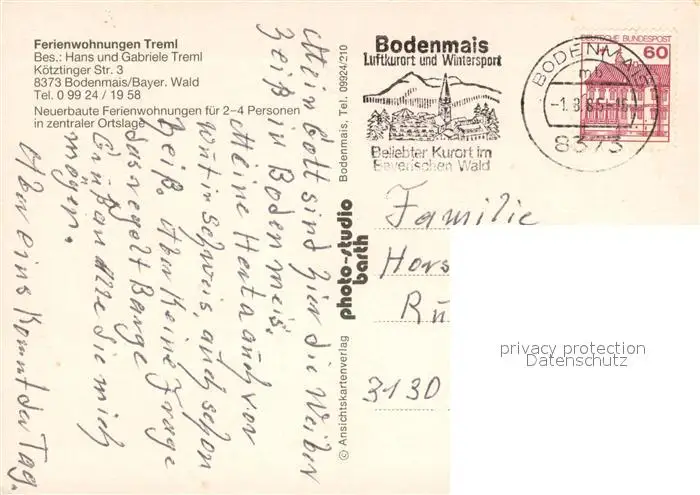 Ferienwohnungen Treml
Bes.: Hans und Gabriele Treml
Kötztinger Str. 3
8373 Bodenmais/Bayer. Wald
Tel. 0 99 24 / 19 58
Neuerbaute Ferienwohnungen für 2–4 Personen
in zentraler Ortslage
Mein Gott sind hier die Weiber
heiß in Bodenmeis.
Meine Herta auch von
wut in Schweis, auch schon
heiß. Aber Keine Frage
das regelt Bange
Gruß an Alle die mich
mögen.
Aber eins Kommt der Tag.
Bodenmais, Tel. 09924/210
photo-studio
barth
© Ansichtskartenverlag
Bodenmais
Luftkurort und Wintersport
Beliebter Kurort im
Bayerischen Wald
BODENMAIS
mb
8373
DEUTSCHE BUNDESPOST
60
Familie
Hors
Rü
3130
privacy protection
Datenschutz